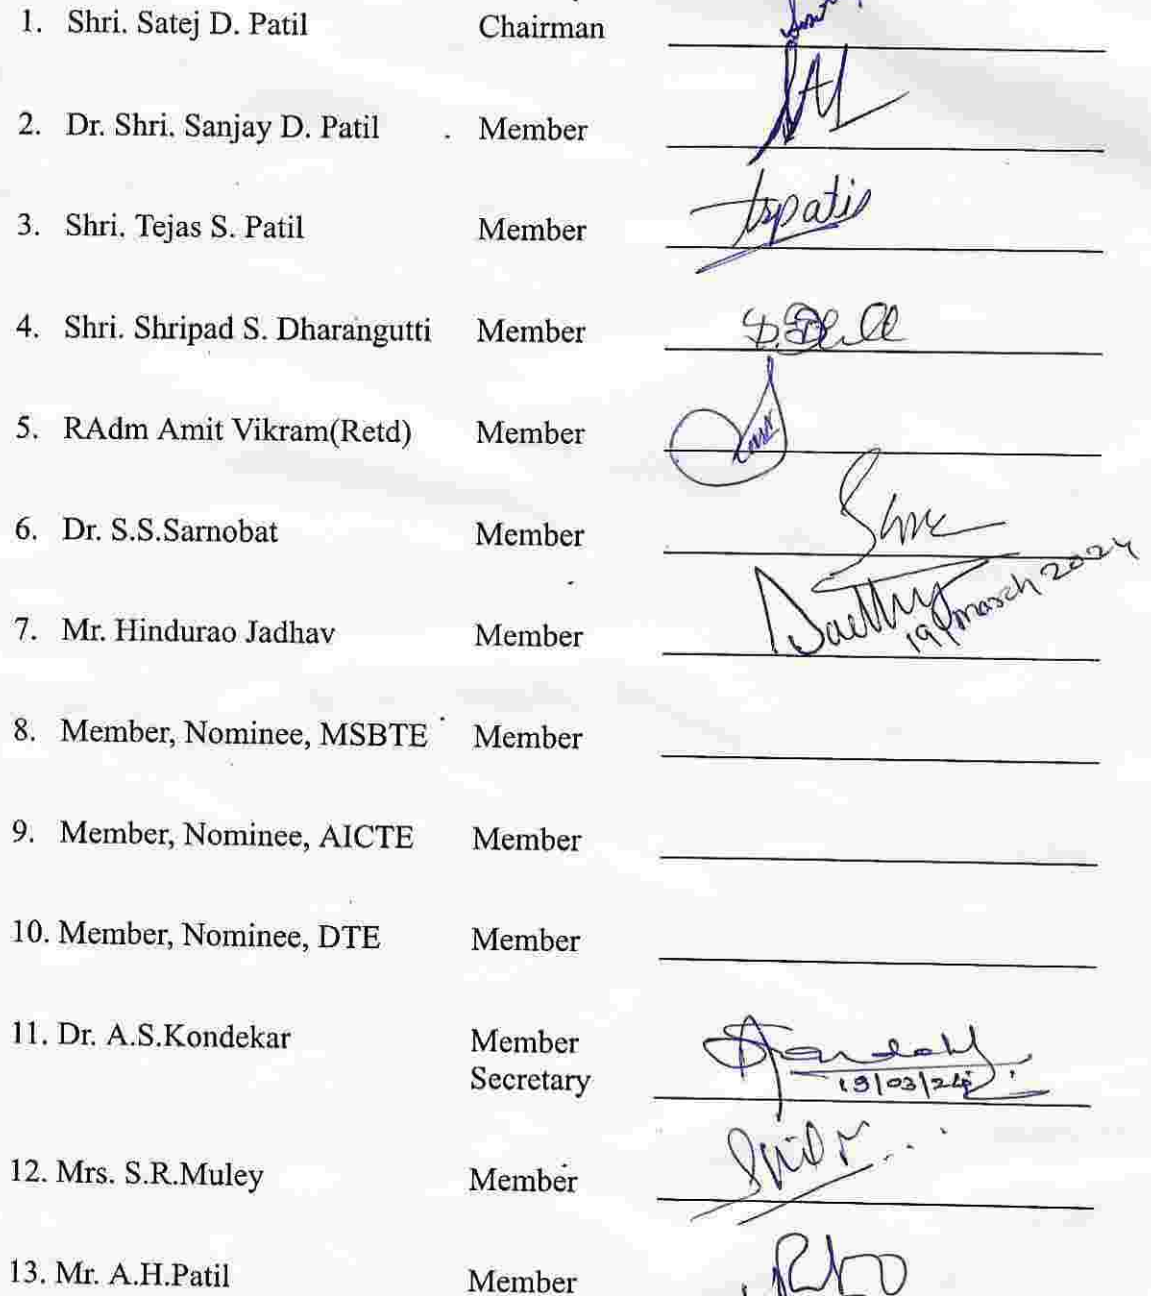 1. Shri. Satej D. Patil Chairman
2. Dr. Shri. Sanjay D. Patil Member
3. Shri. Tejas S. Patil Member tspatil
4. Shri. Shripad S. Dharangutti Member
5. RAdm Amit Vikram(Retd) Member
6. Dr. S.S.Sarnobat Member
7. Mr. Hindurao Jadhav Member 19 March 2024
8. Member, Nominee, MSBTE Member
9. Member, Nominee, AICTE Member
10. Member, Nominee, DTE Member
11. Dr. A.S.Kondekar Member
Secretary 19/03/24
12. Mrs. S.R.Muley Member
13. Mr. A.H.Patil Member